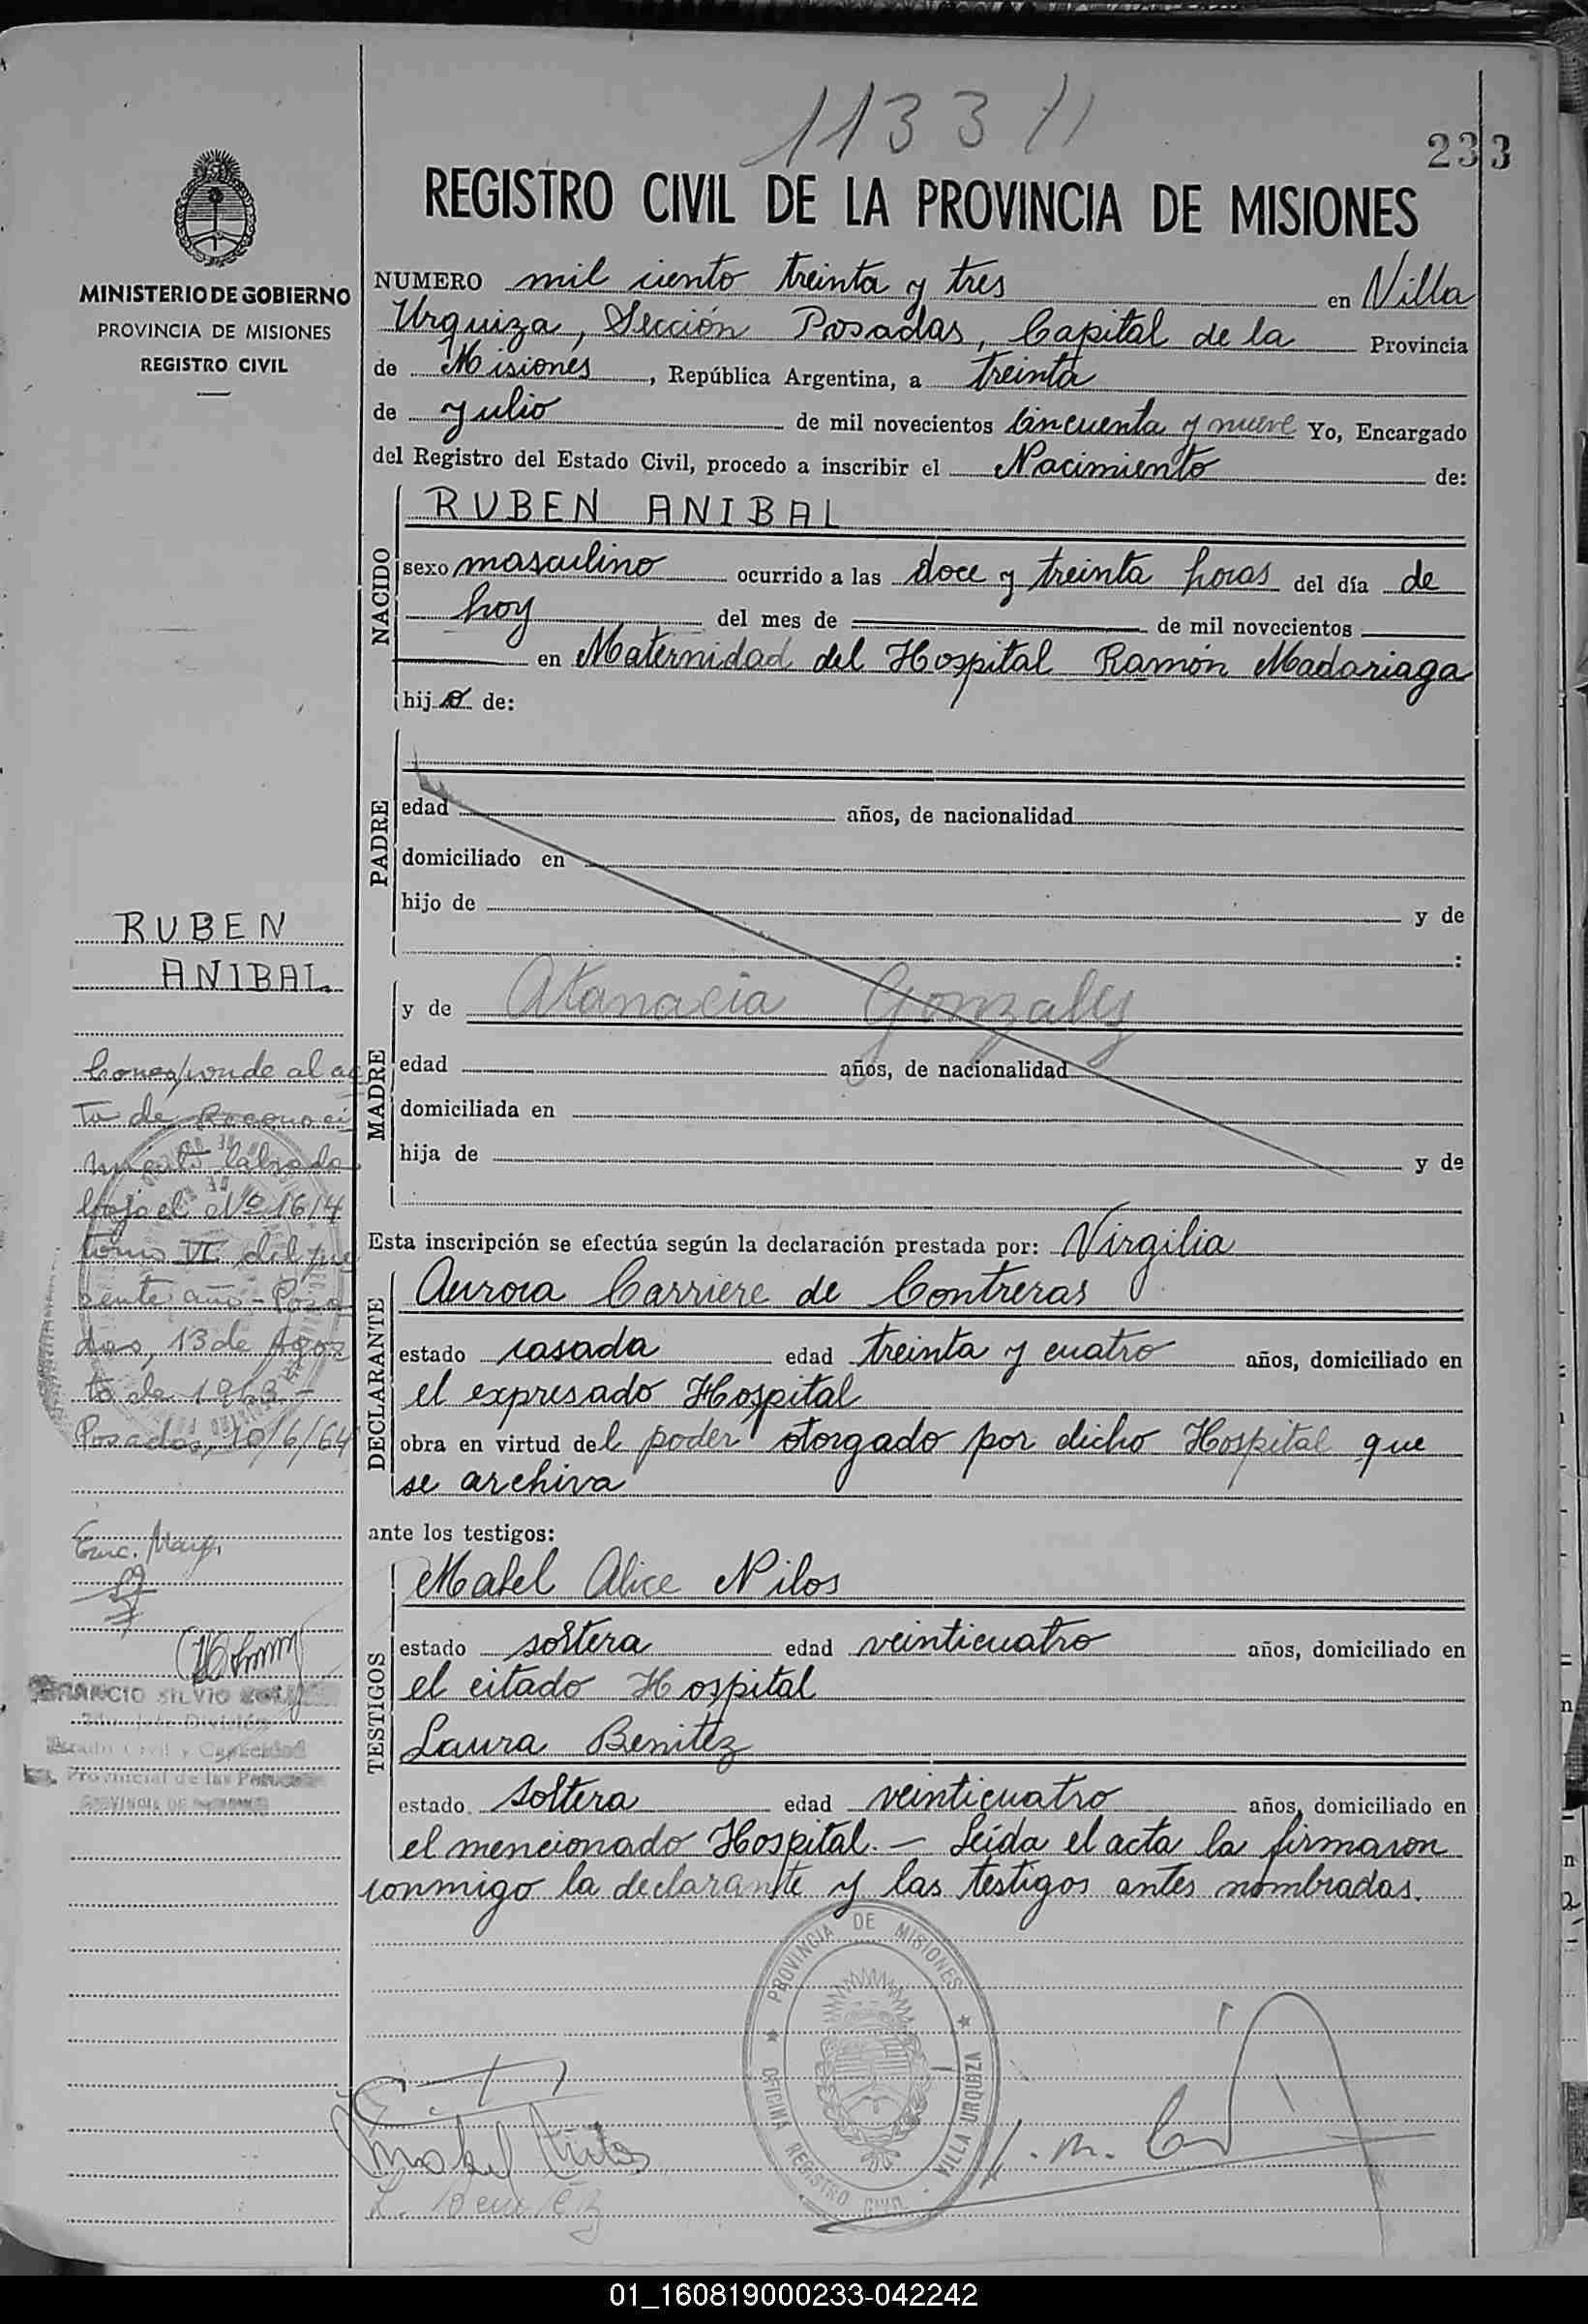 1133
233
REGISTRO CIVIL DE LA PROVINCIA DE MISIONES
MINISTERIO DE GOBIERNO
PROVINCIA DE MISIONES
REGISTRO CIVIL
NUMERO mil ciento treinta y tres en Villa
Urquiza, Sección Posadas, Capital de la Provincia
de Misiones, República Argentina, a treinta
de Julio de mil novecientos cincuenta y nueve Yo, Encargado
del Registro del Estado Civil, procedo a inscribir el Nacimiento de:
NACIDO
RUBEN ANIBAL
sexo masculino ocurrido a las doce y treinta horas del día de
hoy del mes de de mil novecientos
en Maternidad del Hospital Ramón Madariaga
hijo de:
PADRE
edad años, de nacionalidad
domiciliado en
hijo de y de
:
MADRE
y de Atanacia Gonzalez
edad años, de nacionalidad
domiciliada en
hija de y de
Esta inscripción se efectúa según la declaración prestada por: Virgilia
DECLARANTE
Aurora Carriere de Contreras
estado casada edad treinta y cuatro años, domiciliado en
el expresado Hospital
obra en virtud del poder otorgado por dicho Hospital que
se archiva
ante los testigos:
TESTIGOS
Mabel Alice Nilos
estado soltera edad veinticuatro años, domiciliado en
el citado Hospital
Laura Benitez
estado soltera edad veinticuatro años, domiciliado en
el mencionado Hospital.— Leída el acta la firmaron
conmigo la declarante y las testigos antes nombradas.
RUBEN
ANIBAL
Corresponde al ac
ta de Reconoci
miento labrada
bajo el Nº 1614
tomo VI del pre
sente año - Posa
das, 13 de Agos
to de 1963.-
Posadas, 10/6/64
Enc. Marg.
SILVIO
División
Civil y Capacidad
Provincial de las Personas
PROVINCIA DE MISIONES
PROVINCIA DE MISIONES
OFICINA REGISTRO CIVIL - VILLA URQUIZA
Mabel Nilos
L. Benitez
01_160819000233-042242